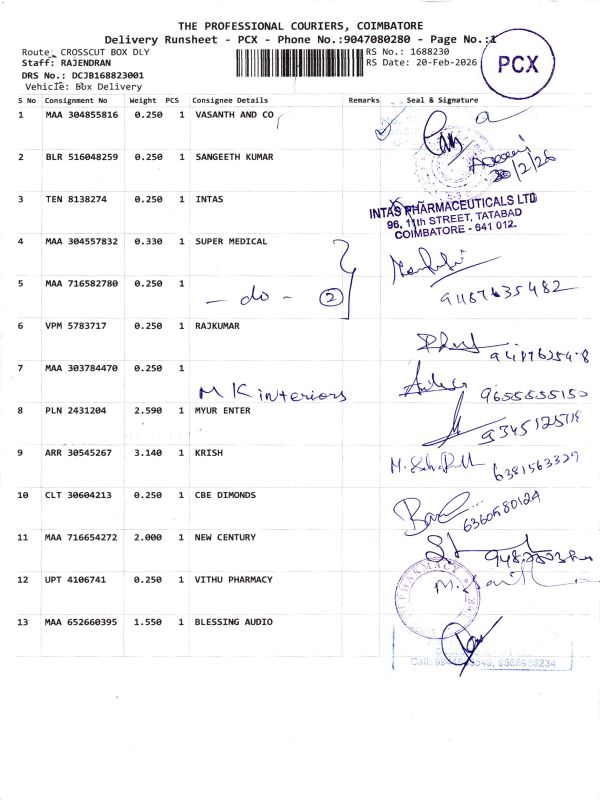 THE PROFESSIONAL COURIERS, COIMBATORE
Delivery Runsheet - PCX - Phone No.:9047080280 - Page No.:1
Route: CROSSCUT BOX DLY RS No.: 1688230
Staff: RAJENDRAN RS Date: 20-Feb-2026
PCX
DRS No.: DCJB168823001
Vehicle: Box Delivery
S No Consignment No Weight PCS Consignee Details Remarks Seal & Signature
1 MAA 304855816 0.250 1 VASANTH AND CO
2 BLR 516048259 0.250 1 SANGEETH KUMAR
20/2/26
3 TEN 8138274 0.250 1 INTAS
INTAS PHARMACEUTICALS LTD
96, 11th STREET, TATABAD
COIMBATORE - 641 012.
4 MAA 304557832 0.330 1 SUPER MEDICAL
5 MAA 716582780 0.250 1
- do - 2
6 VPM 5783717 0.250 1 RAJKUMAR
7 MAA 303784470 0.250 1
MK interiors 9655555150
8 PLN 2431204 2.590 1 MYUR ENTER
9 ARR 30545267 3.140 1 KRISH
6381563329
10 CLT 30604213 0.250 1 CBE DIMONDS
11 MAA 716654272 2.000 1 NEW CENTURY
12 UPT 4106741 0.250 1 VITHU PHARMACY
PHARMACY
13 MAA 652660395 1.550 1 BLESSING AUDIO
Call: